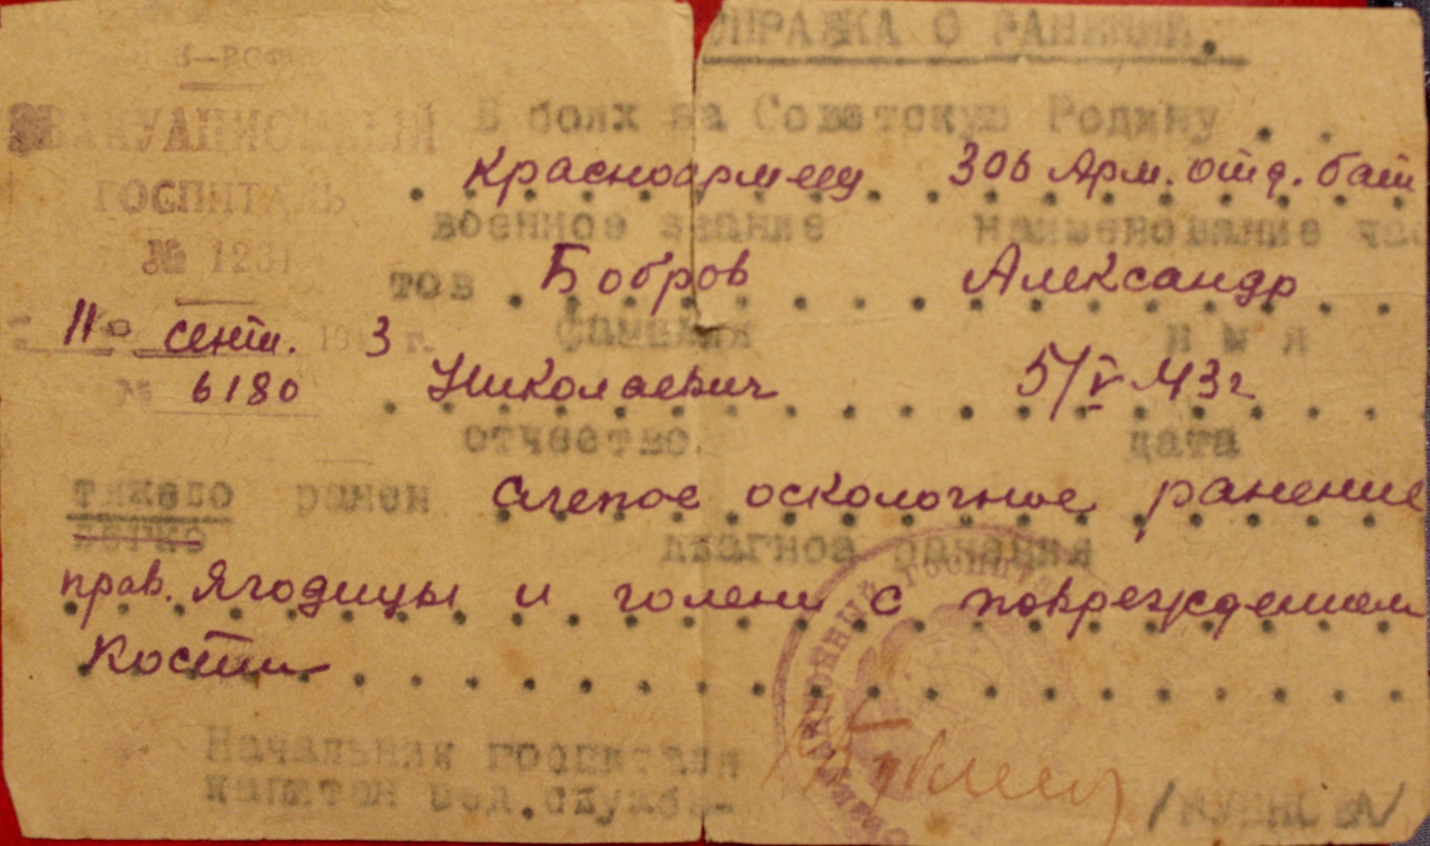 СПРАВКА О РАНЕНИИ.
ЭВАКУАЦИОННЫЙ
ГОСПИТАЛЬ
№ 1231
11го сент. 1943 г.
№ 6180
В боях за Советскую Родину . .
. красноармеец 306 Арм. отд. бат
военное звание наименование час
тов . Бобров Александр
фамилия имя
Николаевич 5/V 43 г
отчество. дата
тяжело ранен слепое осколочное ранение
легко диагноз ранения
прав. Ягодицы и голени с повреждением
кости
Начальник госпиталя
капитан мед. службы-